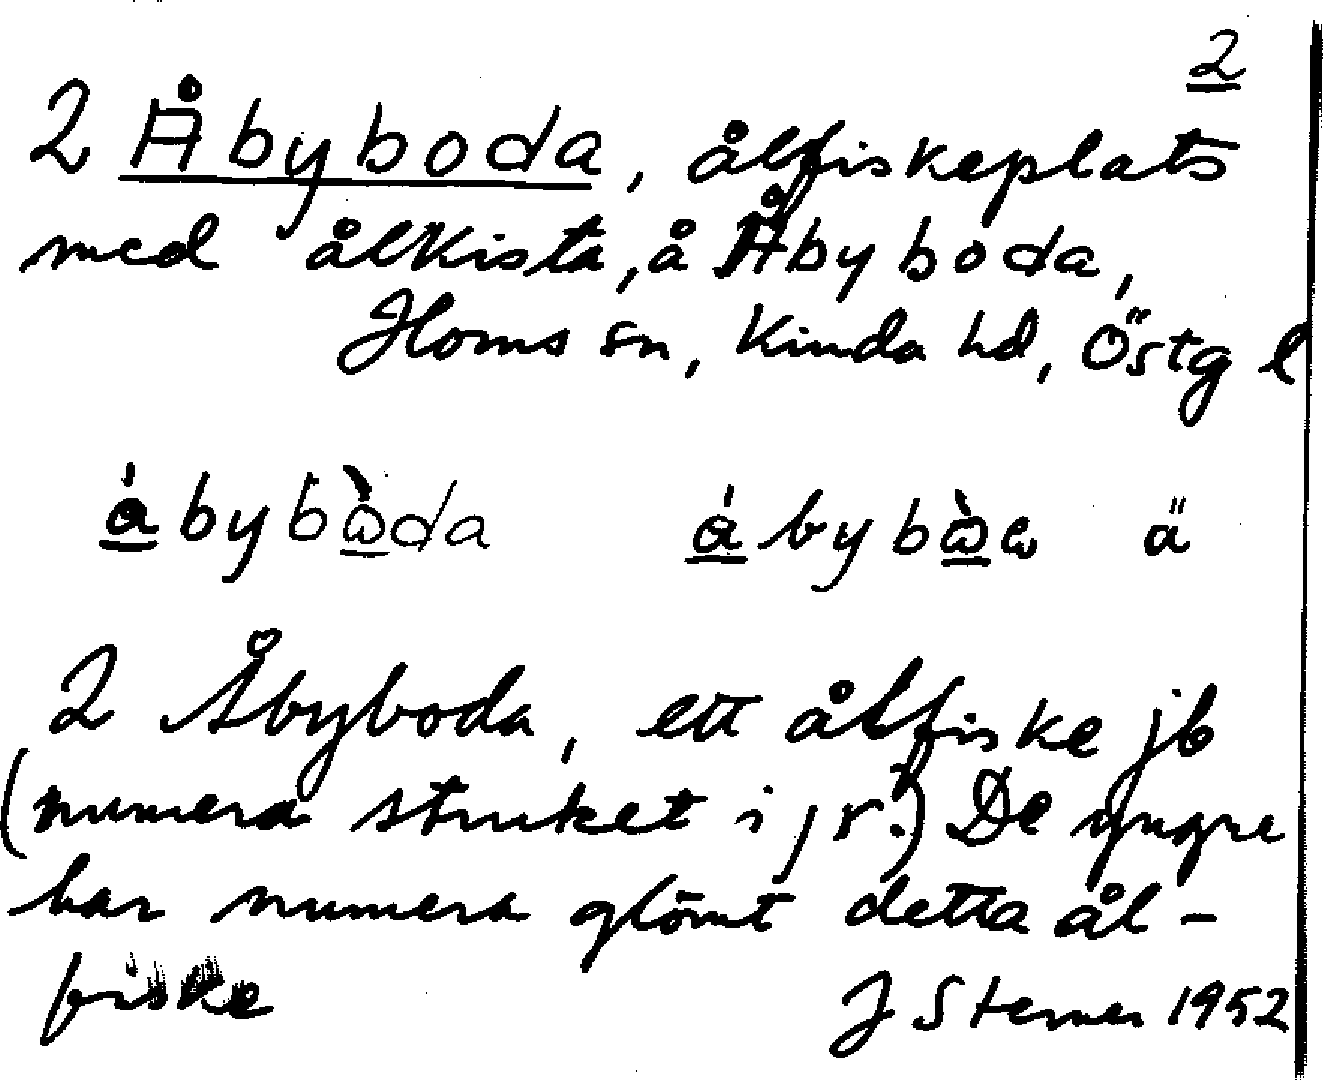 2
2 Åbyboda, ålfiskeplats
med ålkista, å Åbyboda,
Horns sn, Kinda hd, Östg l
2 Åbyboda, ett ålfiske jb
(numera struket i jr?) De yngre
har numera glömt detta ål-
fiske
J Sterner 1952